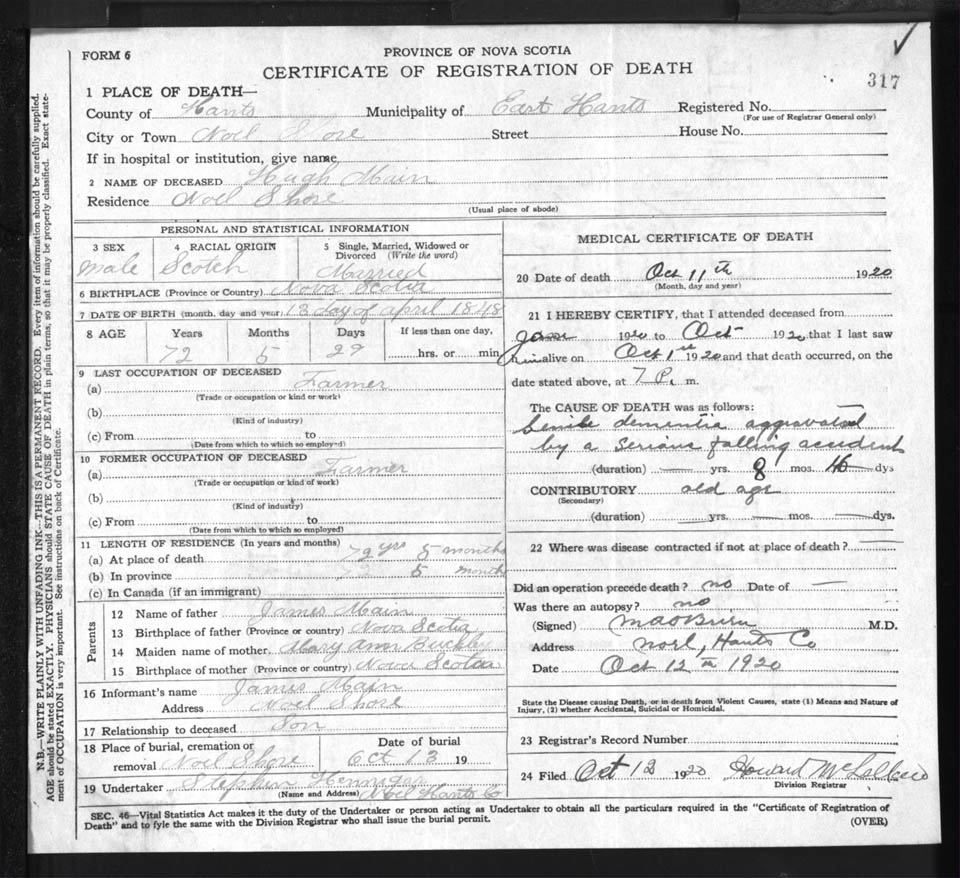 FORM 6
PROVINCE OF NOVA SCOTIA
CERTIFICATE OF REGISTRATION OF DEATH
317
1 PLACE OF DEATH—
County of Hants Municipality of East Hants Registered No.
(For use of Registrar General only)
City or Town Noel Shore Street House No.
If in hospital or institution, give name
2 NAME OF DECEASED Hugh Main
Residence Noel Shore
(Usual place of abode)
PERSONAL AND STATISTICAL INFORMATION
3 SEX 4 RACIAL ORIGIN 5 Single, Married, Widowed or
Divorced (Write the word)
male Scotch Married
6 BIRTHPLACE (Province or Country) Nova Scotia
7 DATE OF BIRTH (month, day and year) 13 day of april 1848
8 AGE Years Months Days If less than one day,
72 5 29 hrs. or min
9 LAST OCCUPATION OF DECEASED
(a) Farmer
(Trade or occupation or kind or work)
(b)
(Kind of industry)
(c) From to
(Date from which to which so employed)
10 FORMER OCCUPATION OF DECEASED
(a) Farmer
(Trade or occupation or kind of work)
(b)
(Kind of industry)
(c) From to
(Date from which to which so employed)
11 LENGTH OF RESIDENCE (In years and months)
(a) At place of death 72 yrs 5 months
(b) In province 72 5 months
(c) In Canada (if an immigrant)
Parents
12 Name of father James Main
13 Birthplace of father (Province or country) Nova Scotia
14 Maiden name of mother Mary Ann
15 Birthplace of mother (Province or country) Nova Scotia
16 Informant's name James Main
Address Noel Shore
17 Relationship to deceased Son
18 Place of burial, cremation or Date of burial
removal Noel Shore Oct 13 19
19 Undertaker Stephen Hennigar
(Name and Address) Noel Hants Co
MEDICAL CERTIFICATE OF DEATH
20 Date of death Oct 11th 1920
(Month, day and year)
21 I HEREBY CERTIFY, that I attended deceased from
1920 to Oct 1920, that I last saw
him alive on Oct 1st 1920 and that death occurred, on the
date stated above, at 7 P. m.
The CAUSE OF DEATH was as follows:
Senile dementia aggravated
by a serious falling accident
(duration) — yrs. 8 mos. dys
CONTRIBUTORY old age
(Secondary)
(duration) — yrs. — mos. — dys.
22 Where was disease contracted if not at place of death? —
Did an operation precede death? no Date of —
Was there an autopsy? no
(Signed) M.D.
Address Noel, Hants Co
Date Oct 12th 1920
State the Disease causing Death, or in death from Violent Causes, state (1) Means and Nature of
Injury, (2) whether Accidental, Suicidal or Homicidal.
23 Registrar's Record Number
24 Filed Oct 12 1920 Howard
Division Registrar
SEC. 46—Vital Statistics Act makes it the duty of the Undertaker or person acting as Undertaker to obtain all the particulars required in the "Certificate of Registration of
Death" and to fyle the same with the Division Registrar who shall issue the burial permit. (OVER)
N.B.—WRITE PLAINLY WITH UNFADING INK—THIS IS A PERMANENT RECORD. Every item of information should be carefully supplied.
AGE should be stated EXACTLY. PHYSICIANS should STATE CAUSE OF DEATH in plain terms, so that it may be properly classified. Exact state-
ment of OCCUPATION is very important. See instructions on back of Certificate.